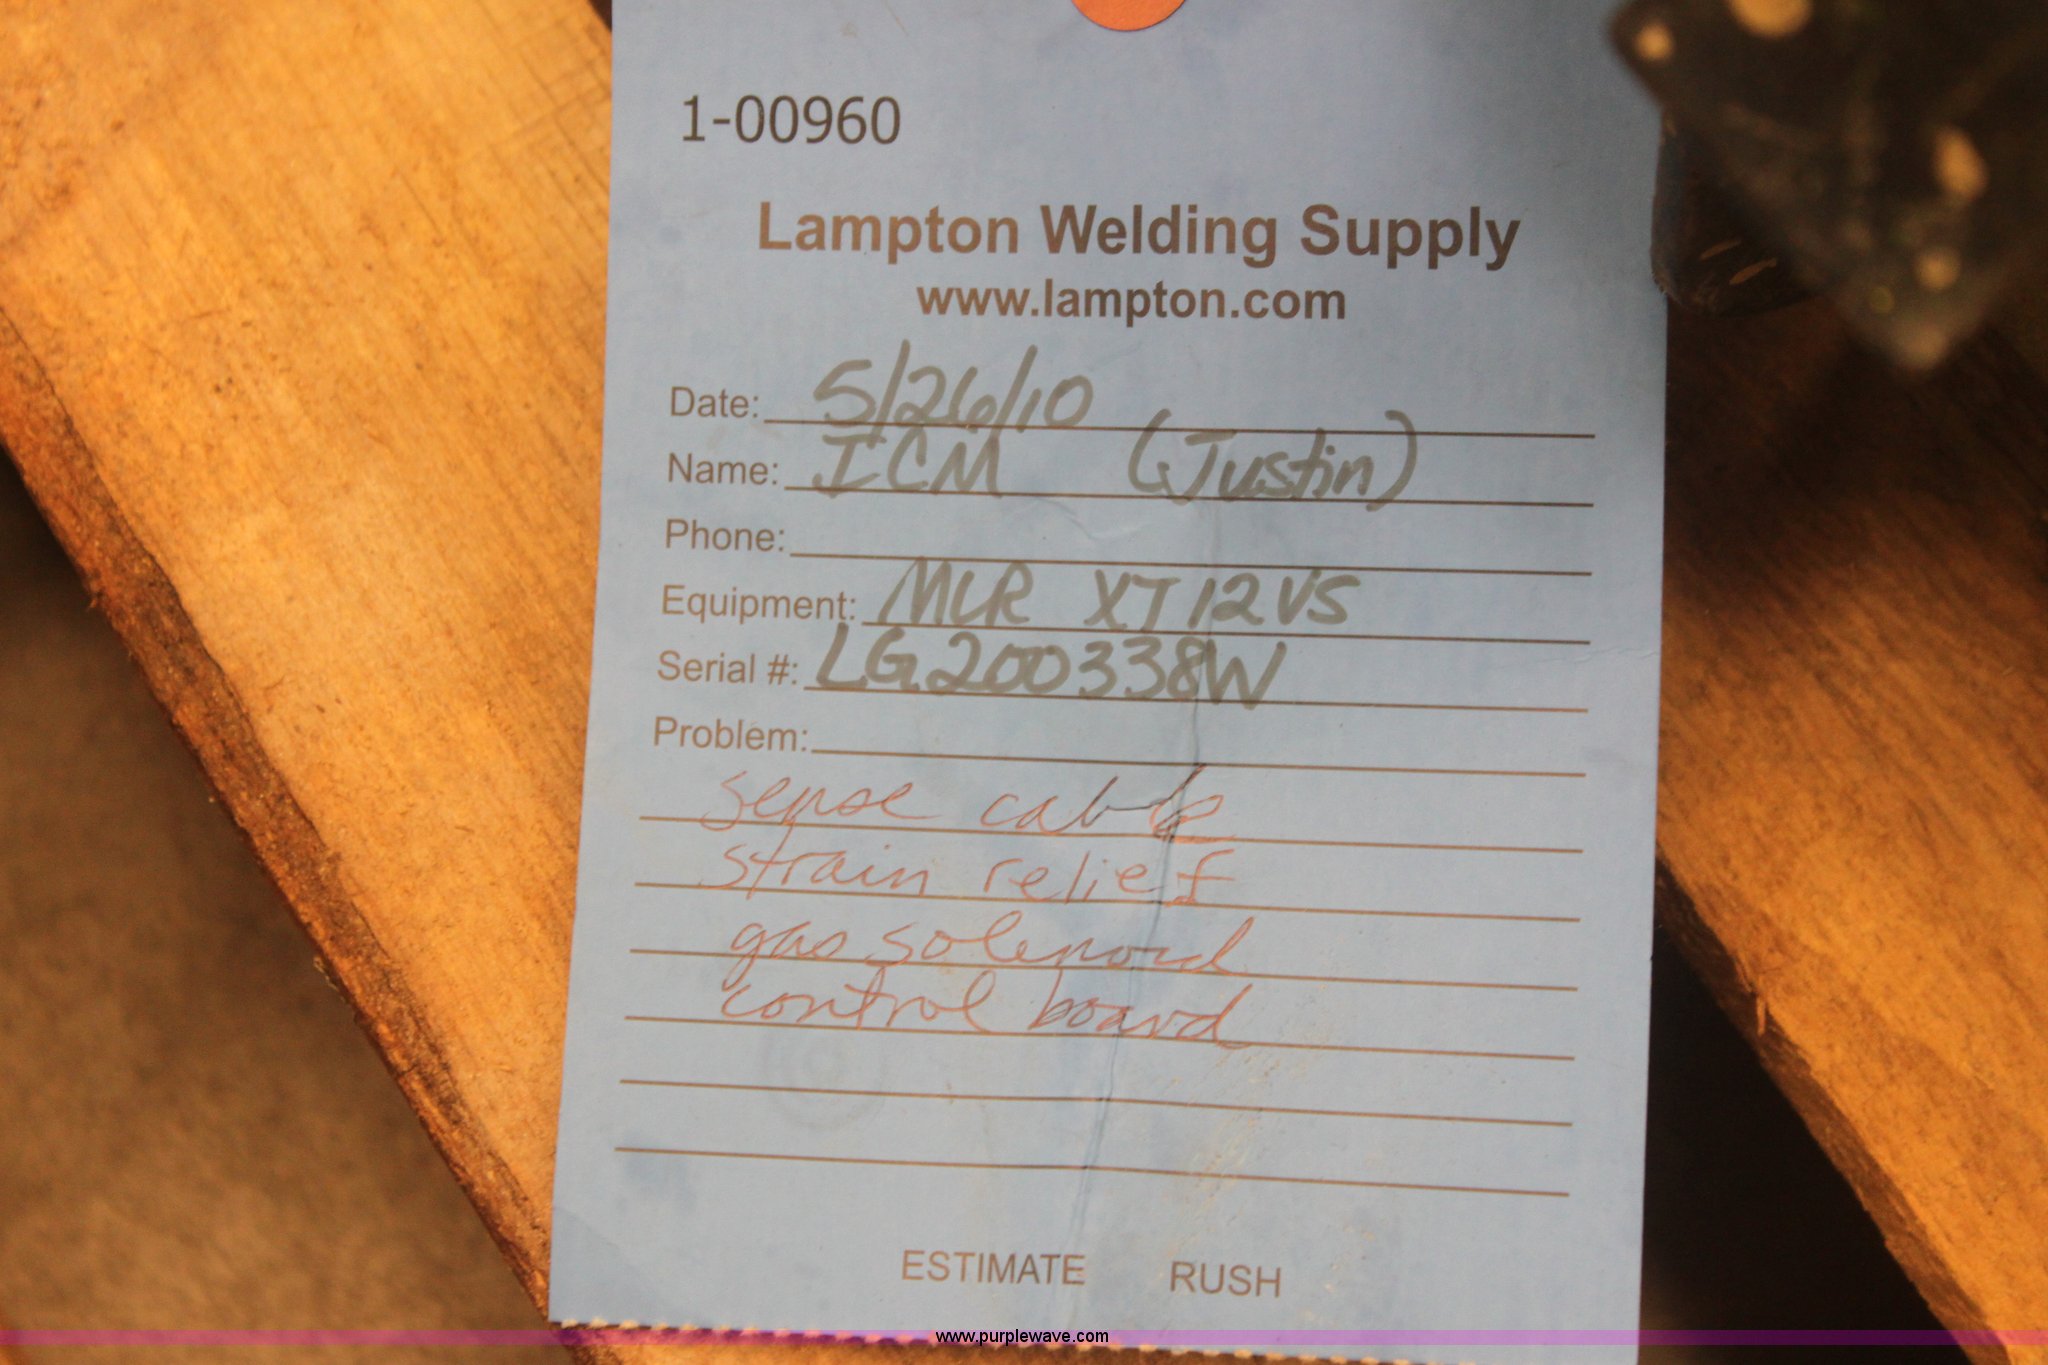 1-00960
Lampton Welding Supply
www.lampton.com
Date: 5/26/10
Name: ICM (Justin)
Phone:
Equipment: MLR XT12VS
Serial #: LG200338W
Problem:
sense cable
strain relief
gas solenoid
control board
ESTIMATE RUSH
www.purplewave.com